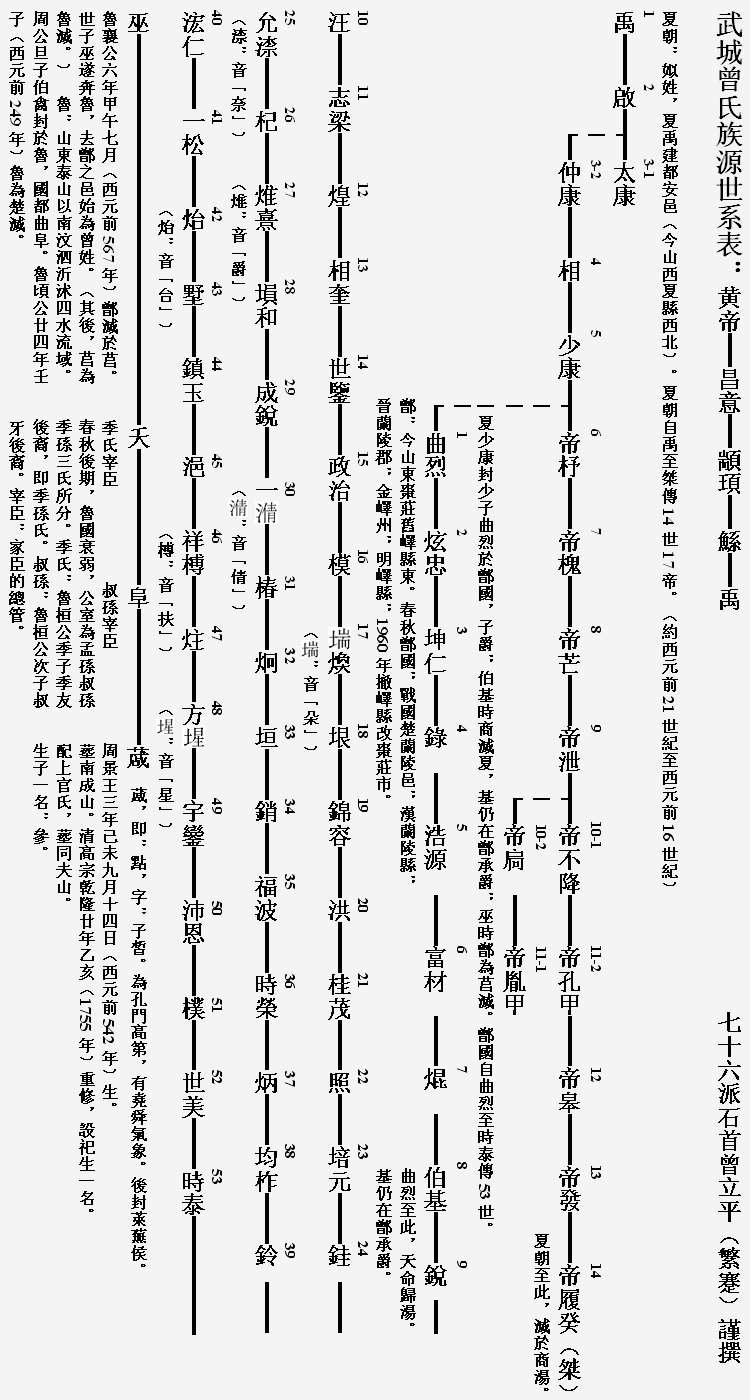 武城曾氏族源世系表：黃帝—昌意—顓頊—鯀—禹
七十六派石首曾立平（繁蹇）謹撰
夏朝：姒姓，夏禹建都安邑（今山西夏縣西北）。夏朝自禹至桀傳14世17帝。（約西元前21世紀至西元前16世紀）
1 禹 2 啟 3-1 太康
3-2 仲康 4 相 5 少康 6 帝杼 7 帝槐 8 帝芒 9 帝泄 10-1 帝不降 11-2 帝孔甲 12 帝皋 13 帝發 14 帝履癸（桀）
夏朝至此，滅於商湯。
10-2 帝扃 11-1 帝胤甲
夏少康封少子曲烈於鄫國，子爵，伯基時商滅夏，基仍在鄫承爵，巫時鄫為莒滅。鄫國自曲烈至時泰傳53世。
1 曲烈 2 炫忠 3 坤仁 4 錄 5 浩源 6 富材 7 焜 8 伯基 9 銳
鄫，今山東棗莊舊嶧縣東。春秋鄫國，戰國楚蘭陵邑，漢蘭陵縣，
晉蘭陵郡，金嶧州，明嶧縣，1960年撤嶧縣改棗莊市。
曲烈至此，天命歸湯。
基仍在鄫承爵。
10 汪 11 志梁 12 煌 13 相奎 14 世鑒 15 政治 16 模 17 瑞煥 18 垠 19 錦容 20 洪 21 桂茂 22 照 23 培元 24 銈
（瑞，音「朵」）
25 允漆 26 杞 27 焳熹 28 塤和 29 成銳 30 一清 31 椿 32 炯 33 垣 34 銷 35 福波 36 時榮 37 炳 38 均柞 39 鈴
（漆，音「奈」）
（焳，音「爵」）
（清，音「倩」）
40 浤仁 41 一松 42 炲 43 墅 44 鎮玉 45 浥 46 祥榑 47 炷 48 方煋 49 宇鑾 50 沛恩 51 樸 52 世美 53 時泰
（炲，音「台」）
（榑，音「扶」）
（煋，音「星」）
巫 夭 阜 蒧
魯襄公六年甲午七月（西元前567年）鄫滅於莒。
世子巫遂奔魯，去鄫之邑始為曾姓。（其後，莒為
魯滅。） 魯：山東泰山以南汶泗沂沭四水流域。
周公旦子伯禽封於魯，國都曲阜。魯頃公廿四年壬
子（西元前249年）魯為楚滅。
季氏宰臣
叔孫宰臣
春秋後期，魯國衰弱，公室為孟孫叔孫
季孫三氏所分。季氏：魯桓公季子季友
後裔，即季孫氏。叔孫：魯桓公次子叔
牙後裔。宰臣：家臣的總管。
蒧，即：點，字：子皙。為孔門高第，有堯舜氣象。後封萊蕪侯。
周景王三年己未九月十四日（西元前542年）生。
墓南成山。清高宗乾隆廿年乙亥（1755年）重修，設祀生一名。
配上官氏，墓同夫山。
生子一名：參。